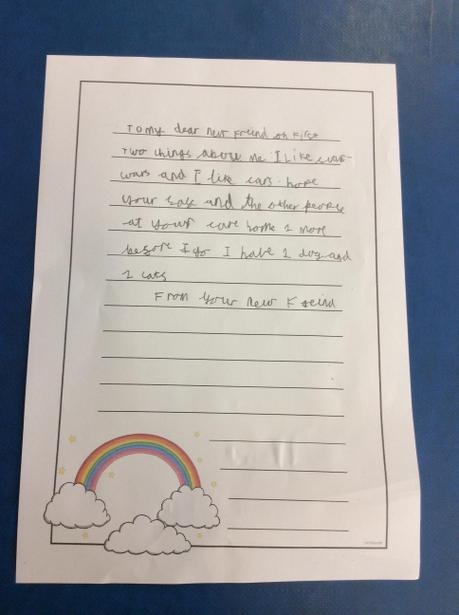 To my dear new friend oh first
two things about me I like star
wars and I like cars. hope
your safe and the other people
at your care home 1 more
before I go I have 1 dog and
2 cats
From your new Freind